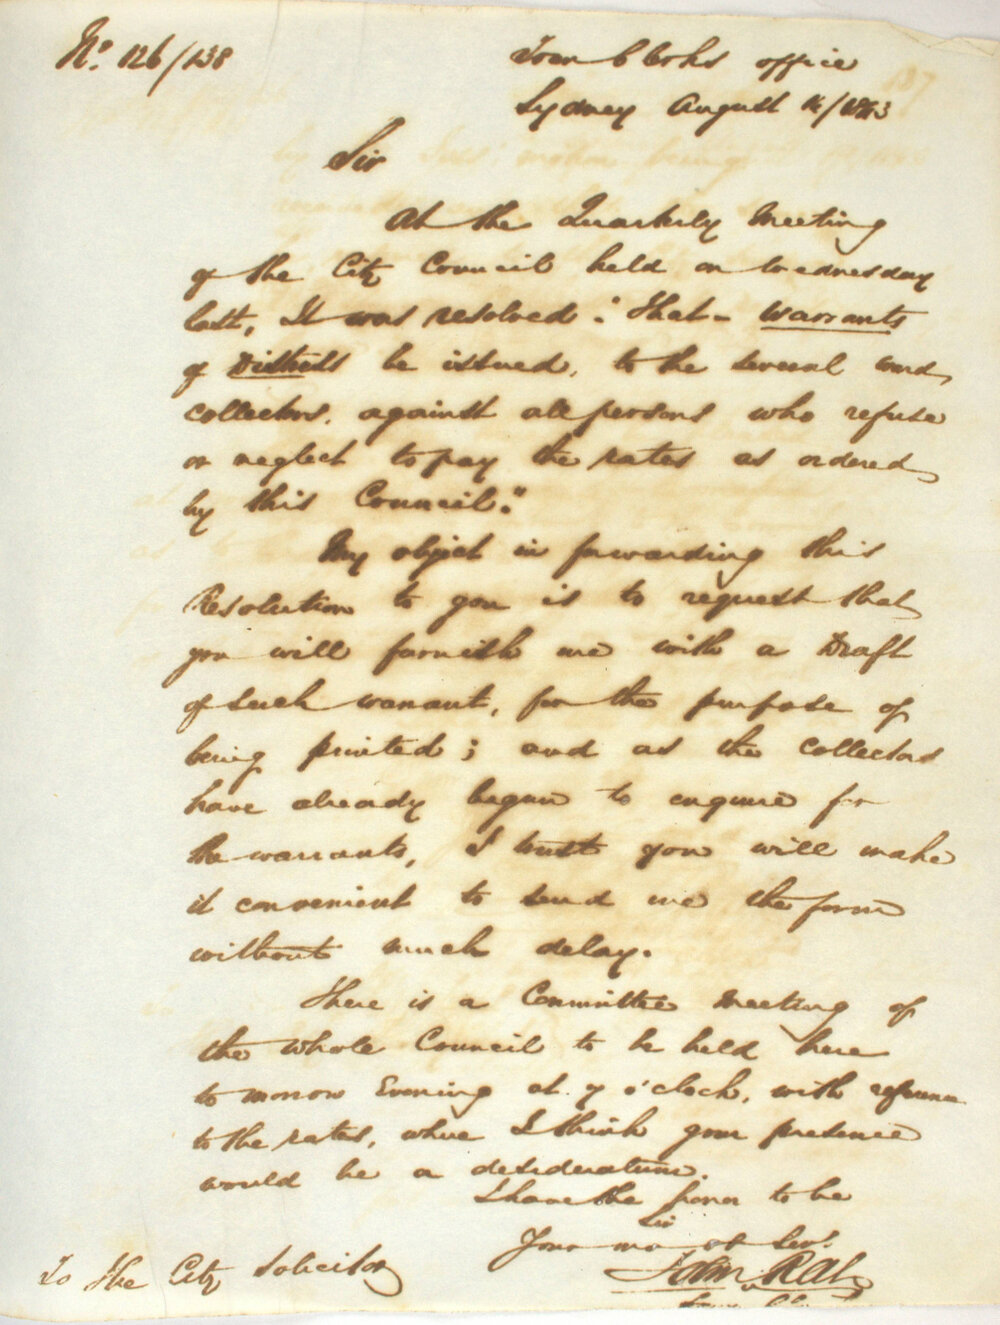 No. 126/138
Town Clerks office
Sydney August 14/1843
Sir
At the Quarterly Meeting
of the City Council held on Wednesday
last, It was resolved "That Warrants
of Distress be issued, to the several ward
collectors, against all persons who refuse
or neglect to pay the rates as ordered
by this Council."
My object in forwarding this
Resolution to you is to request that
you will furnish me with a Draft
of such warrant, for the purpose of
being printed; and as the collectors
have already began to enquire for
the warrants, I trust you will make
it convenient to send me the form
without much delay.
There is a Committee Meeting of
the whole Council to be held here
to morrow Evening at 7 o'clock, with reference
to the rates, where I think your presence
would be a desideratum.
I have the honor to be
Sir
Your mo ob Servt
John Rae
To The City Solicitor